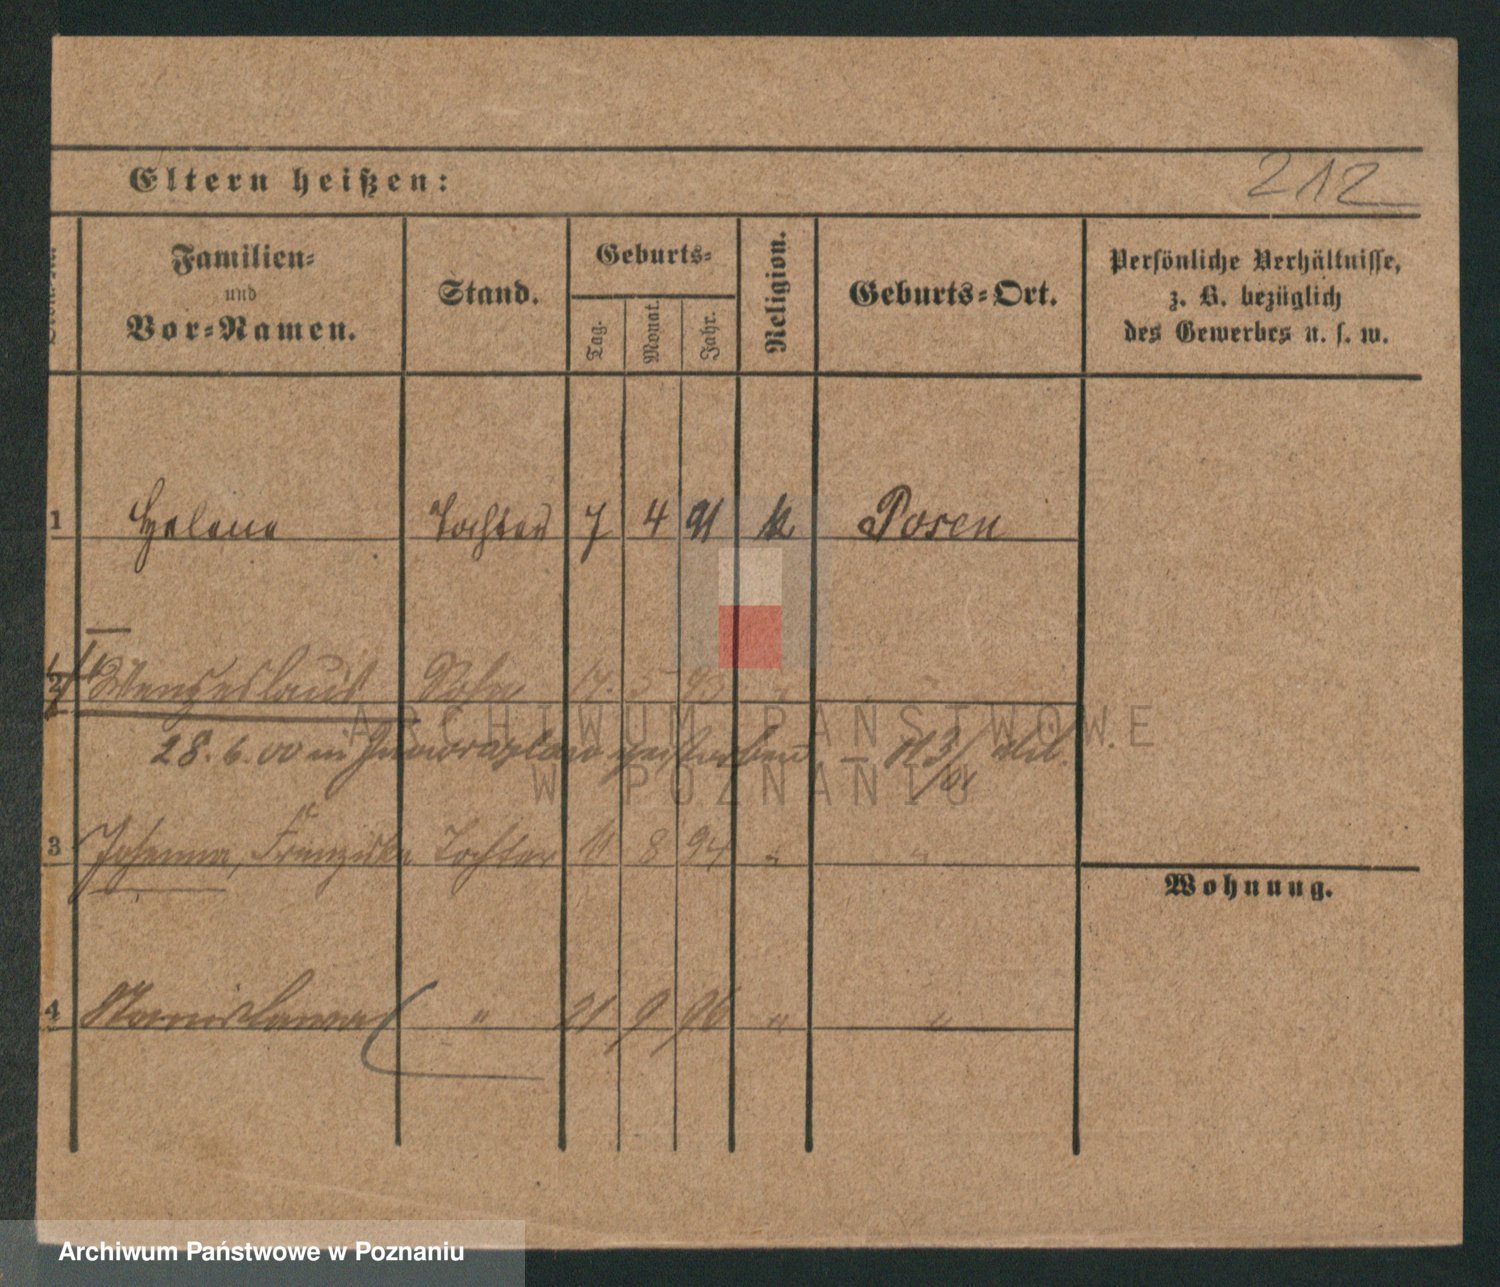 Eltern heißen:
212
Familien-
und
Vor-Namen.
Stand.
Geburts-
Tag.
Monat.
Jahr.
Religion.
Geburts-Ort.
Persönliche Verhältnisse,
z. B. bezüglich
des Gewerbes u. s. w.
1 Helene Tochter 7 4 91 k Posen
2 Wenzeslaus Sohn 17. 5 93 " "
ARCHIWUM PAŃSTWOWE
28. 6. 00 in gestorben
W POZNANIU
3 Johanna, Franziska Tochter 11 8 94 " "
Wohnung.
4 Stanislawa " 21 9 96 " "
Archiwum Państwowe w Poznaniu